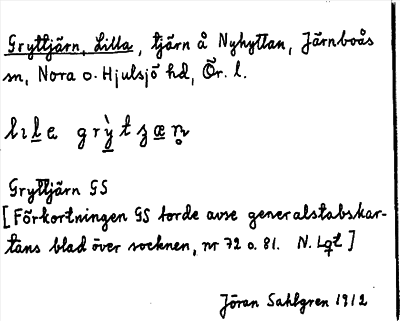 Gryttjärn, Lilla, tjärn å Nyhyttan, Järnboås
sn, Nora o. Hjulsjö hd, Ör. l.
Gryttjärn GS
[Förkortningen GS torde avse generalstabskar-
tans blad över socknen, nr 72 o. 81. N. Lqt]
Jöran Sahlgren 1912